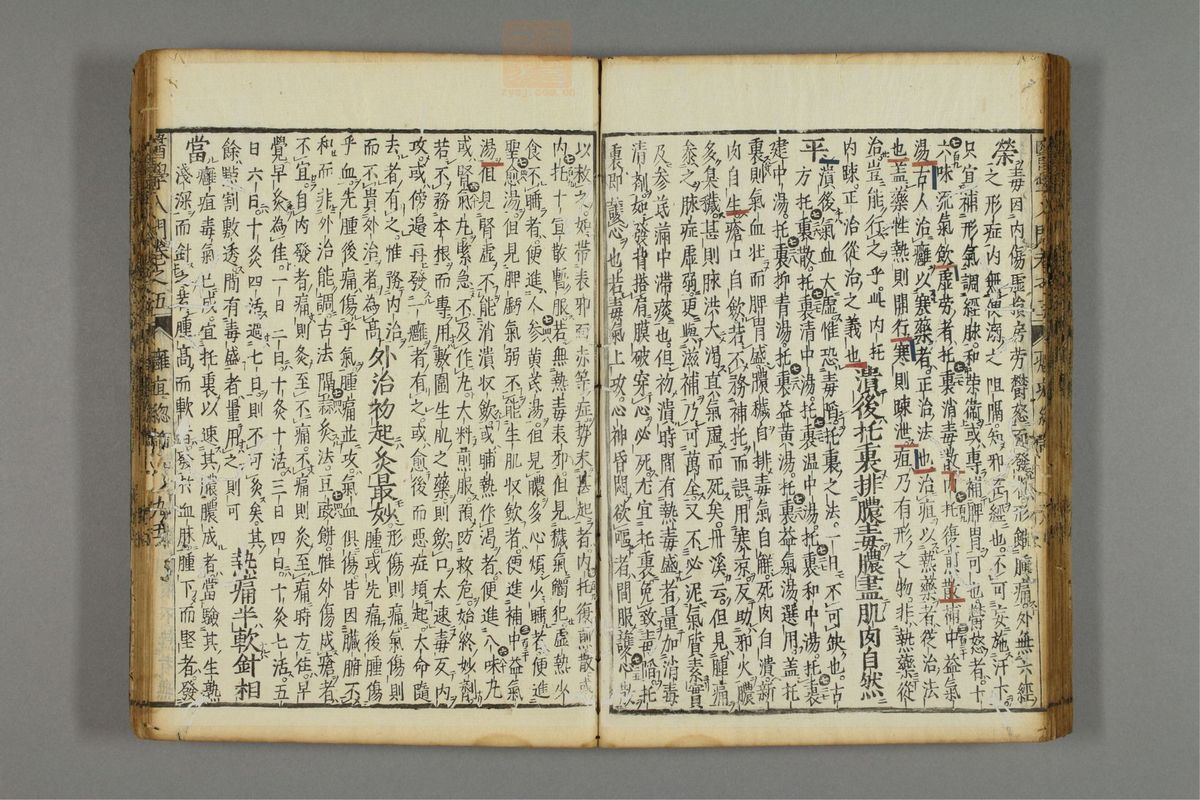 榮。毒因内傷
之形症内無便溺之阻隔。知邪在經也。不可妄施汗下
只宜補形氣調經脉。和榮衛。或專補脾胃可也。欝怒者。十
六味流氣飲。虚労者。托裏消毒散。托裏復煎散。補中益氣
湯。古人治癰以寒藥者。正治法也。治疽以熱藥者。從治法
也。盖藥性熱則開行。寒則踈泄。疽乃有形之物。非熱藥從
治。豈能行之乎。此内托
内踈。正治從治之義也。潰後托裏排膿毒膿盡肌肉自然
平。潰後氣血大虚。惟恐毒陷。托裏之法。一日不可缺也。古
方托裏散。托裏清中湯。托裏温中湯。托裏和中湯。托裏
建中湯。托裏抑青湯。托裏益黄湯。托裏益氣湯選用。盖托
裏則氣血壮而脾胃盛。膿穢自排。毒氣自解。死肉自潰。新
肉自生。瘡口自歛。若不務補托。而誤用寒凉。反助邪火。膿
多集穢。甚則脉洪大渴。眞氣虚而死矣。丹溪云。但見腫痛。
叅之脉症虚弱。更與滋補。乃可萬全。又不必泥氣質素實
及参芪滿中滯痰也。但初潰時間有熱毒盛者。量加消毒
清劑。如發背搭肩膜破穿心必死。尤宜托裏。免致毒陷。托
裏即護心也。若毒氣上攻。心神昏悶欲嘔者。間服護心散
以救之。如帶表邪
内托十宣散暫服。若無熱毒表邪。但見穢氣觸犯。虚熱少
食。不睡者。便進人参黄芪湯。但見膿多。心煩少睡者。便進
聖愈湯。但見脾𢋈氣弱。不能生肌收歛者。便進補中益氣
湯。但見腎虚。不能消潰收歛。或晡熱作渴者。便進八味丸
或腎氣丸。緊急不及作丸。大料煎服。預防救危。始終妙劑
若不務本根。而專用敷圍生肌之藥。則歛口太速。毒反内
攻。或傍邊再發一癰者有之。或愈後而惡症頃起。大命隨
去者有之。惟務内治。
而不貴外治者為髙。外治初起灸最妙。形傷則痛。氣傷則
乎。血。先腫後痛。傷乎氣。腫痛並攻。氣血倶傷。皆因臓腑不
和。而非外治能調。古法隔蒜灸法。豆豉餅。惟外傷成瘡者
不宜。自内發者。痛則灸至不痛。不痛則灸至痛時方住。早
覺早灸為佳。一日二日十灸十活。三日四日十灸七活。五
日六日十灸四活。過七日則不可灸矣。其
餘點割敷透。間有毒盛者。量用之則可。熱痛半軟針相
當。癰疽毒氣已成。宜托裏以速其膿。膿成者。當驗其生熟
淺深而針之。若腫髙而軟
腫下而堅者。發
醫學入門卷之五